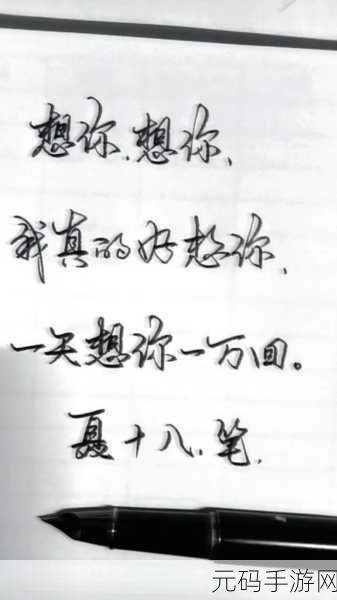 想你.想你、
我真的好想你、
一天想你一万回。
夏十八.笔.
元码手游网